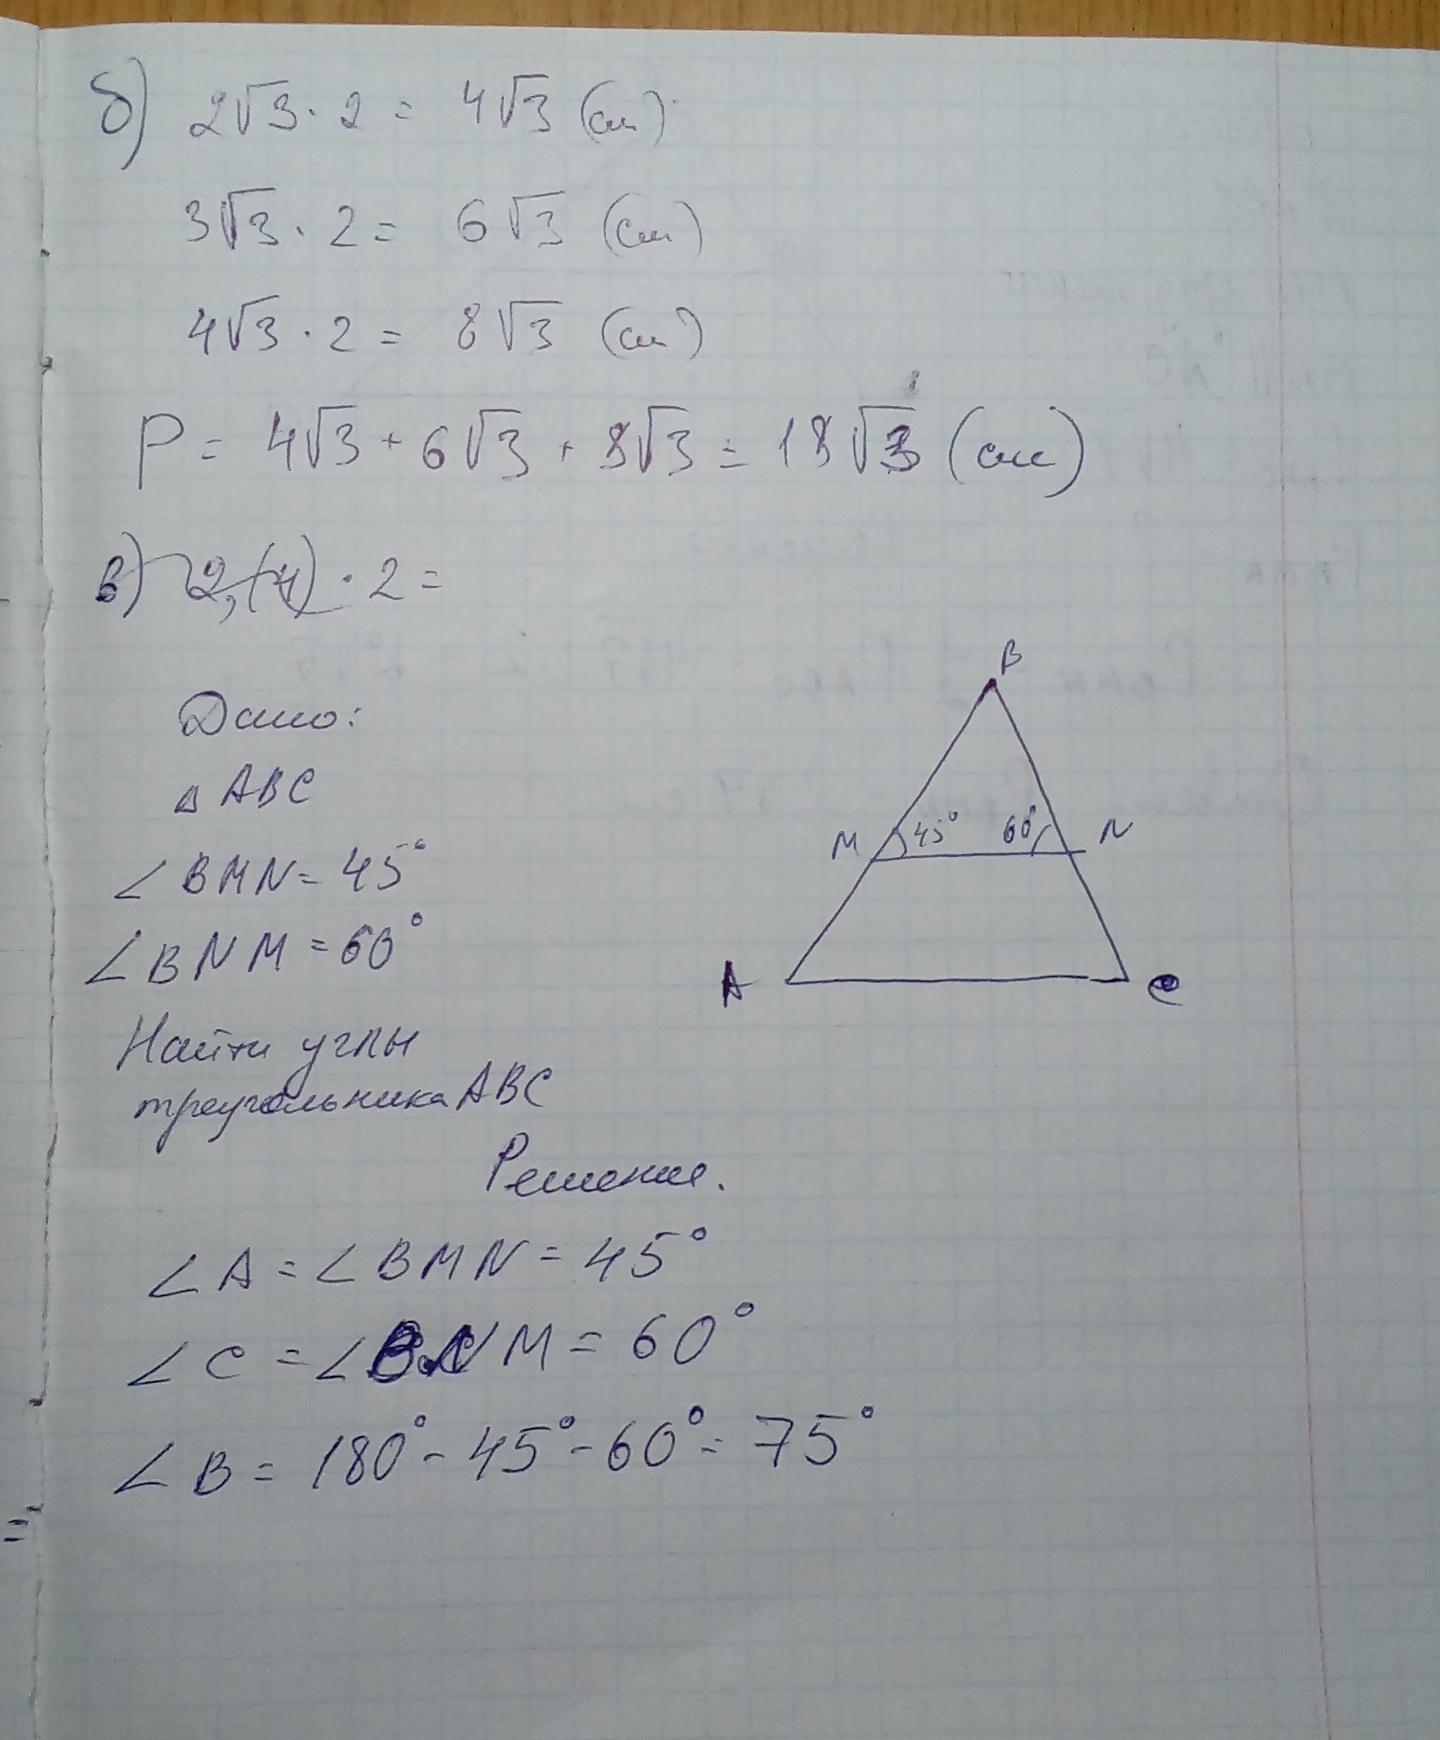 б) 2√3 · 2 = 4√3 (см)
3√3 · 2 = 6√3 (см)
4√3 · 2 = 8√3 (см)
P = 4√3 + 6√3 + 8√3 = 18√3 (см)
в) 2,(4) · 2 =
Дано:
△ ABC
∠ BMN = 45°
∠ BNM = 60°
Найти углы
треугольника ABC
B
M 45° 60° N
A C
Решение.
∠ A = ∠ BMN = 45°
∠ C = ∠ BNM = 60°
∠ B = 180° - 45° - 60° = 75°
=